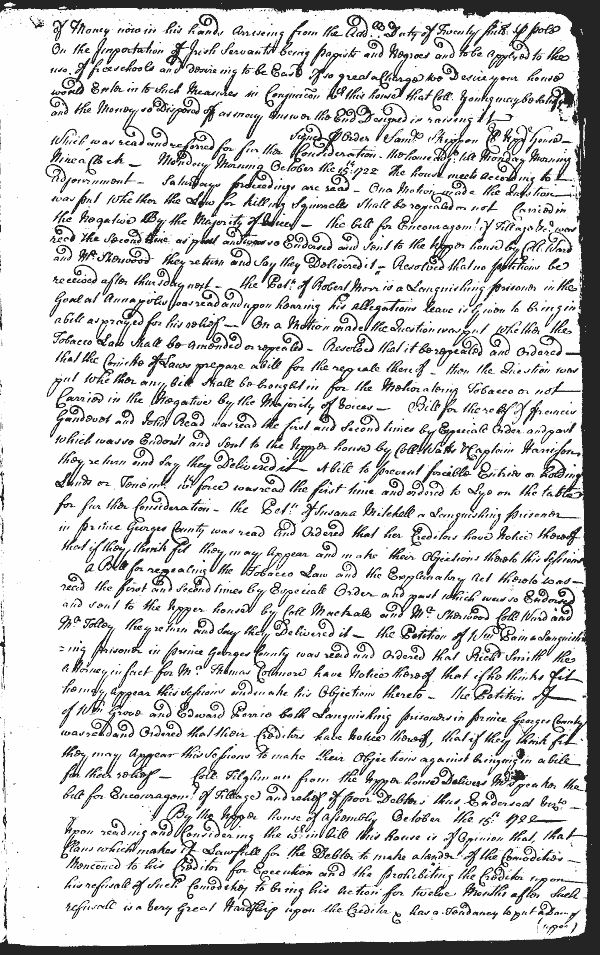 of Money now in his hands Arrising from the Add.ll Duty of Twenty Shill. P pole
On the Importation of Irish Servants being Papists and Negroes and to be Applyed to the
use of freeschools and desireing to be Eased of so great a Charge we Desire your house
would Enter into Such Measures in Conjunction with this house that Coll. Young may be
and the Money so Disposed of as may Answer the End Designed in raising it
Signed P Order Sam.ll Skippon Cl Upp.r House
Which was read and referred for further Consideration. the house Adj.s till Monday Morning
Nine a Clock — Monday Morning October the 15.th 1722 The house meets according to
Adjournment — Saturdays proceedings are read — On a Motion made the Question
was put Whether the Law for killing Squirrells Shall be repealed or not Carried in
the Negative By the Majority of Voices — the bill for Encouragem.t of Tillage &c was
read the Second time, as past and was so Endorsed and Sent to the Upper house by Coll. Ward
and M.r Sherwood they return and Say they Delivered it — Resolved that no petitions be
received after thursday next — the Pet.n of Robert Morris a Languishing prisoner in the
Goal at Annapolis was read and upon hearing his allegations leave is Given to bring in
a bill as prayed for his relief — On a Motion made the Question was put Whether the
Tobacco Law Shall be amended or repealed — Resolved that it be repealed and Ordered
that the Comittee of Laws prepare a bill for the repeale thereof — then the Question was
put whether any bill Shall be bought in for the Meliorateing Tobacco or not
Carried in the Negative by the Majority of Voices — Bill for the relief of francis
Gandovet and John Read was read the first and Second times by Especiale Order and past
which was so Endorst and Sent to the Upper house by Coll. Watts & Captain Harrison
they return and Say they Delivered it — A bill to prevent forcible Entries or holding
Lands or Tenem.ts w.th force was read the first time and ordered to Lye on the table
for further Consideration — the Pet.n of Susana Mitchell a Languishing prisoner
in prince Georges County was read and Ordered that her Creditors have Notice thereof
that if they think fit they may Appear and make their Objections thereto this Sessions
A Bill for repealing the Tobacco Law and the Explanatory Act thereto was
read the first and Second times by Especiale Order and past which was so Endorsed
and sent to the Upper house by Coll Mackall and M.r Sherwood Coll Ward and
M.r Tolley they return and Say they Delivered it — the Petition of W.m Pain a Languish
=ing prisoner in prince Georges County was read and Ordered that Rich.d Smith the
Attorney in fact for M.r Thomas Colmore have Notice thereof that if he thinks fit
he may Appear this Sessions and make his Objections thereto — the Petition of
of W.m Grove and Edward Perrie both Languishing prisoners in prince Georges County
was read and Ordered that their Creditors have Notice thereof, that if they think fit
they may Appear this Sessions to make their Objections against bringing in a bill
for their relief — Coll. Tilghman from the Upper house Delivers M.r Speaker the
bill for Encouragem.t of Tillage and relief of poor Debtors thus Endorsed Viz.t
By the Upper house of Assembly October the 15.th 1722
Upon reading and Considering the w.th in bill this house is of Opinion that, that
Clause which makes it Lawfull for the Debtor to make a tender of the Comodities
Mencioned to his Creditor for Execution and the prohibiting the Creditor upon
his refusall of Such Comodities to bring his Action for twelve Months after Such
refusall is a Very Great Hardship upon the Creditor & has a Tendancy to put a Dam